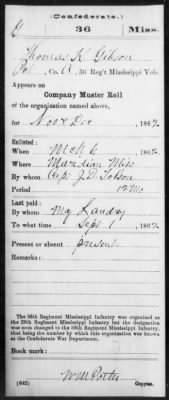 (Confederate.)
G 36 Miss.
Thomas K Gibson
Co. 36 Reg't Mississippi Vols.
Appears on
Company Muster Roll
of the organization named above,
for Nov & Dec, 1862
Enlisted:
When Mch 6, 1862
Where Meridian Miss
By whom Capt J.D.
Period 12 Mo
Last paid:
By whom Maj Landry
To what time Sept 1, 1862
Present or absent present
Remarks:
The 36th Regiment Mississippi Infantry was organized as
the 38th Regiment Mississippi Infantry but the designation
was soon changed to the 36th Regiment Mississippi Infantry,
that being the number by which this organization was known
at the Confederate War Department.
Book mark:
WM Porter
(642) Copyist.